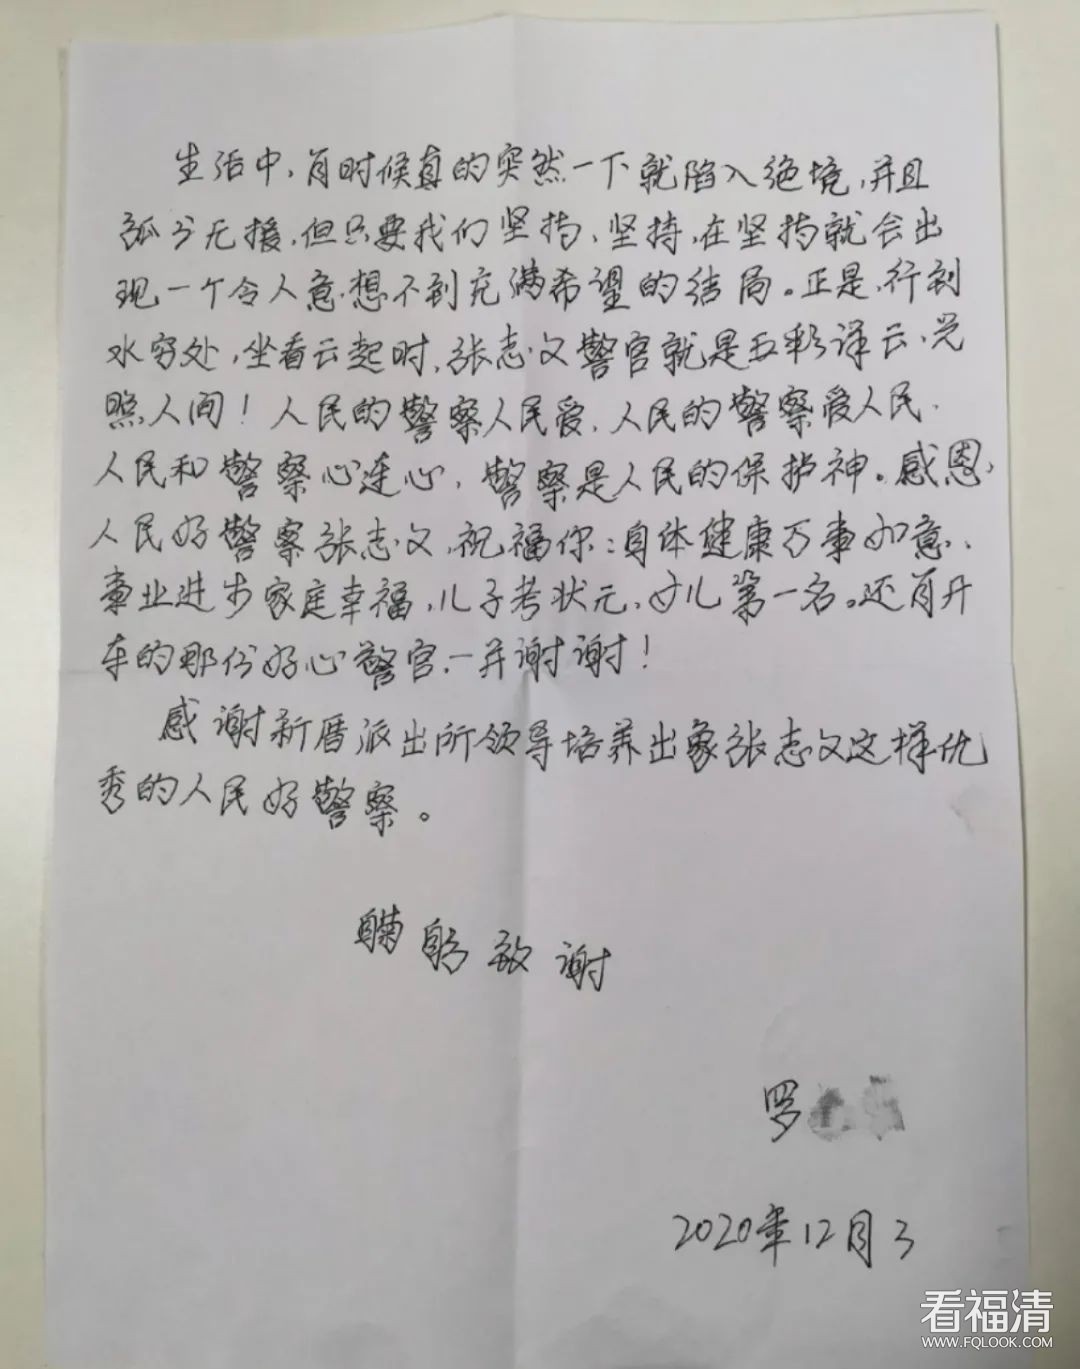 生活中,有时候真的突然一下就陷入绝境,并且
孤立无援,但只要我们坚持、坚持,在坚持就会出
现一个令人意想不到充满希望的结局。正是,行到
水穷处,坐看云起时,张志文警官就是五彩祥云,光
照人间!人民的警察人民爱,人民的警察爱人民,
人民和警察心连心,警察是人民的保护神。感恩,
人民好警察张志文,祝福你:身体健康万事如意、
事业进步家庭幸福,儿子考状元,女儿第一名。还有开
车的那位好心警官,一并谢谢!
感谢新厝派出所领导培养出象张志文这样优
秀的人民好警察。
鞠躬致谢
罗
2020年12月3
看福清
WWW.FQLOOK.COM